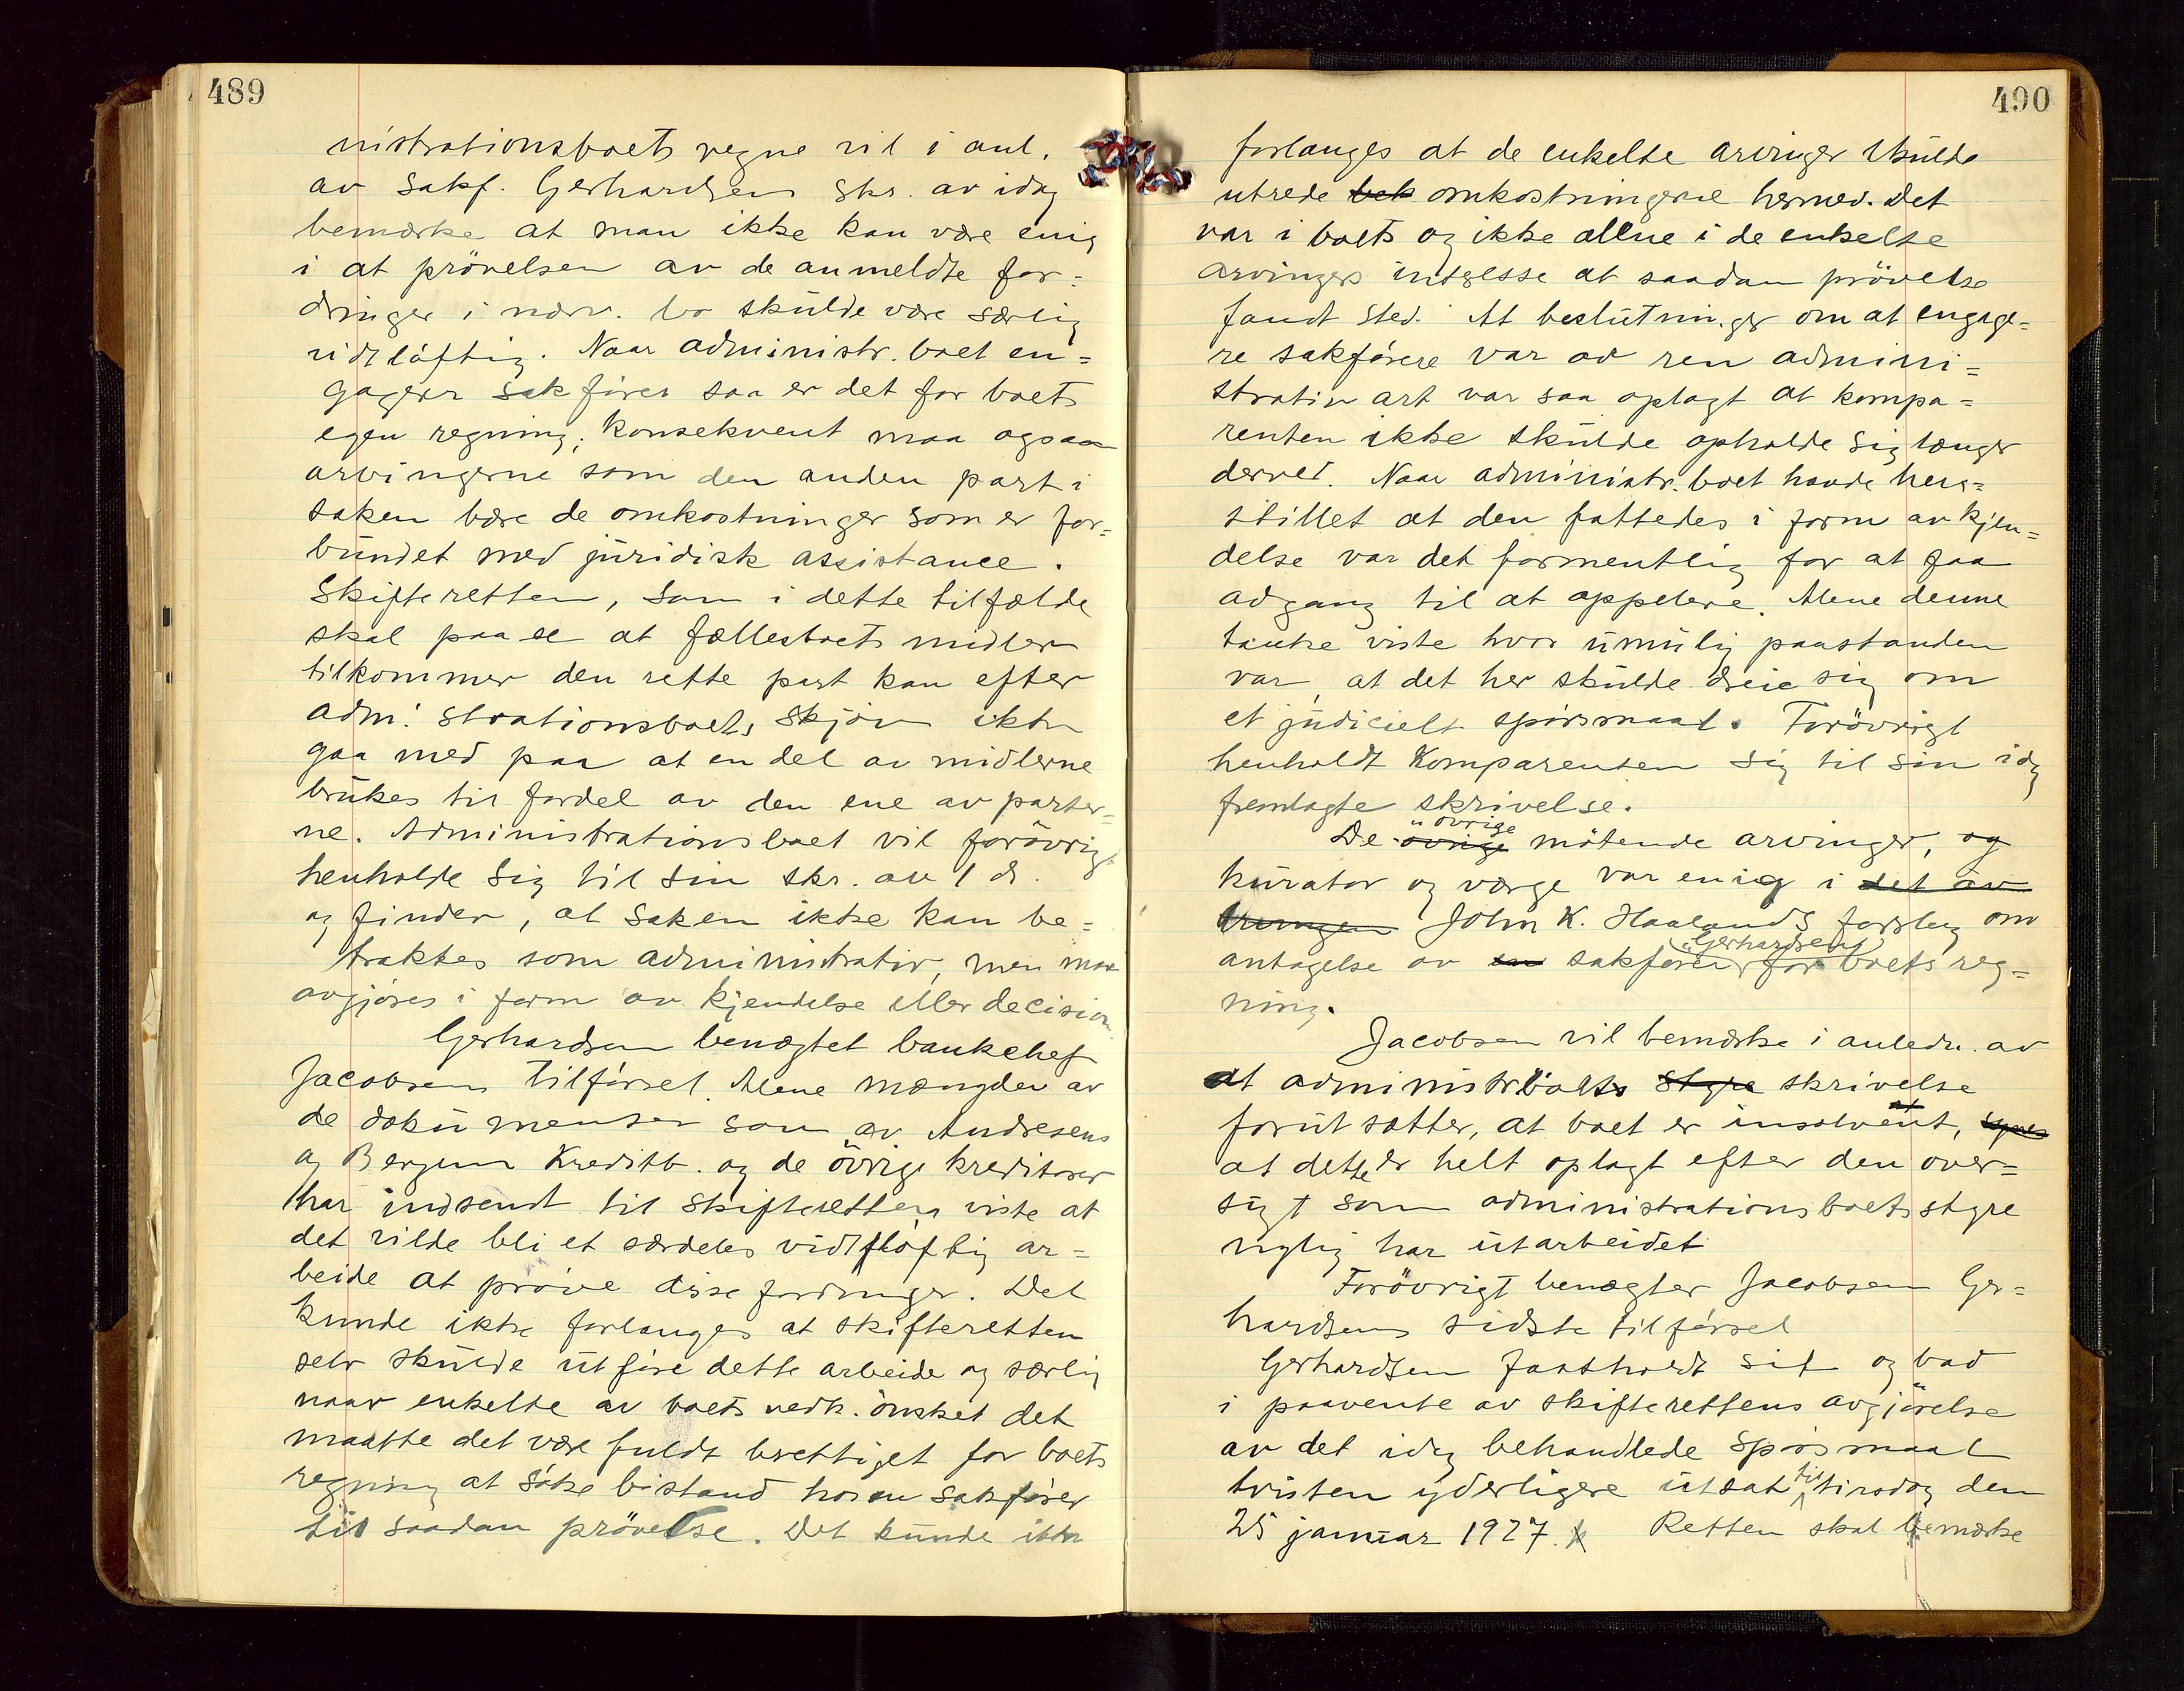 489
nistrationsboets vegne vil i anl.
av sakf. Gerhardsens skr. av idag
bemærke at man ikke kan være enig
i at prövelsen av de anmeldte for=
dringer i nærv. bo skulde være særlig
vidtløftig. Naar administr. boet en=
gagerer sakfører saa er det for boets
egen regning; konsekvent maa ogsaa
arvingerne som den anden part i
saken bære de omkostninger som er for=
bundet med juridisk assistance.
Skifteretten, som i dette tilfælde
skal paase at fællesboets midler
tilkommer den rette part kan efter
adm. strationsboets skjön ikke
gaa med paa at en del av midlerne
brukes til fordel av den ene av parter=
ne. Administrationsboet vil forövrigt
henholde sig til sin skr. av 1 ds.
og finder, at saken ikke kan be=
traktes som administrativ, men maa
avgjøres i form av kjendelse eller decision
Gerhardsen benegtet bankchef
Jacobsens tilførsel. Alene mængden av
de dokumenter som av Andresens
og Bergens Kreditb. og de övrige kreditorer
har indsendt til skifteretten viste at
det vilde bli et særdeles vidtløftig ar=
beide at prøve disse fordringer. Det
kunde ikke forlanges at skifteretten
selv skulde utføre dette arbeide og særlig
naar enkelte av boets vedk. ønsket det
maatte det være fuldt berettiget for boets
regning at søke bistand hos en sakfører
til saadan prövelse. Det kunde ikke
490
forlanges at de enkelte arvinger skulde
utrede bek omkostningerne hermed. Det
var i boets og ikke alene i de enkelte
arvingers interesse at saadan prövelse
fandt sted. At beslutninger om at engage=
re sakførere var av ren admini=
strativ art var saa oplagt at kompa=
renten ikke skulde opholde sig længer
derved. Naar administr. boet havde hen=
stillet at den fattedes i form av kjen=
delse var det formentlig for at faa
adgang til at appelere. Alene denne
tanke viste hvor umulig paastanden
var, at det her skulde dreie sig om
et judicielt spørsmaal. Forövrigt
henholdt komparenten sig til sin idag
fremlagte skrivelse.
De övrige övrige mötende arvinger, og
kurator og værge var enig i det av
John K. Haalands forslag om
antagelse av en sakfører Gerhardsen for boets reg=
ning.
Jacobsen vil bemærke i anledn. av
at administr.boets styre skrivelse
forutsætter, at boet er insolvent,
at dette er helt oplagt efter den over=
sigt som administrationsboets styre
nylig har utarbeidet
Forövrigt benegter Jacobsen Ger=
hardsens sidste tilførsel
Gerhardsen fastholdt sit og bad
i paavente av skifterettens avgjörelse
av det idag behandlede spørsmaal
tvisten yderligere utsat til tirsdag den
25 januar 1927. Retten skal bemærke